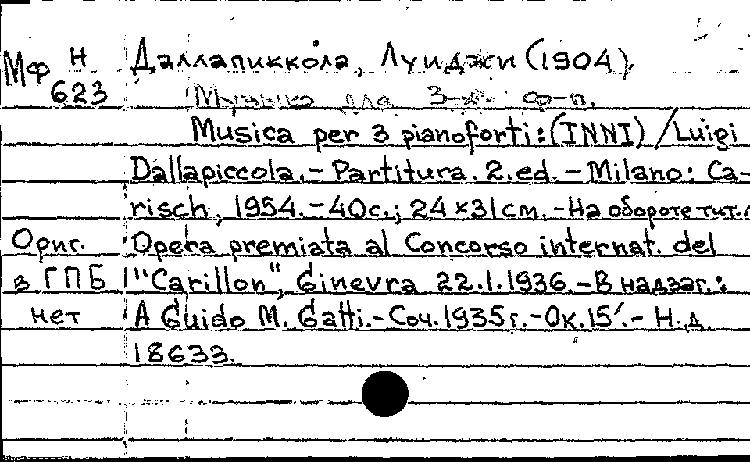 Мф Н 623
Даллапиккола, Луиджи (1904)
Музыка для 3-х ф-п.
Musica per 3 pianoforti: (INNI) / Luigi
Dallapiccola. - Partitura. 2.ed. - Milano: Ca-
risch, 1954. - 40с.; 24×31см. - На обороте тит.л
Ориг. Opera premiata al Concorso internat. del
в ГПБ "Carillon", Ginevra 22.1.1936. - В надзаг.:
нет A Guido M. Gatti. - Соч. 1935г. - Ок.15′. - Н.д.
18633.